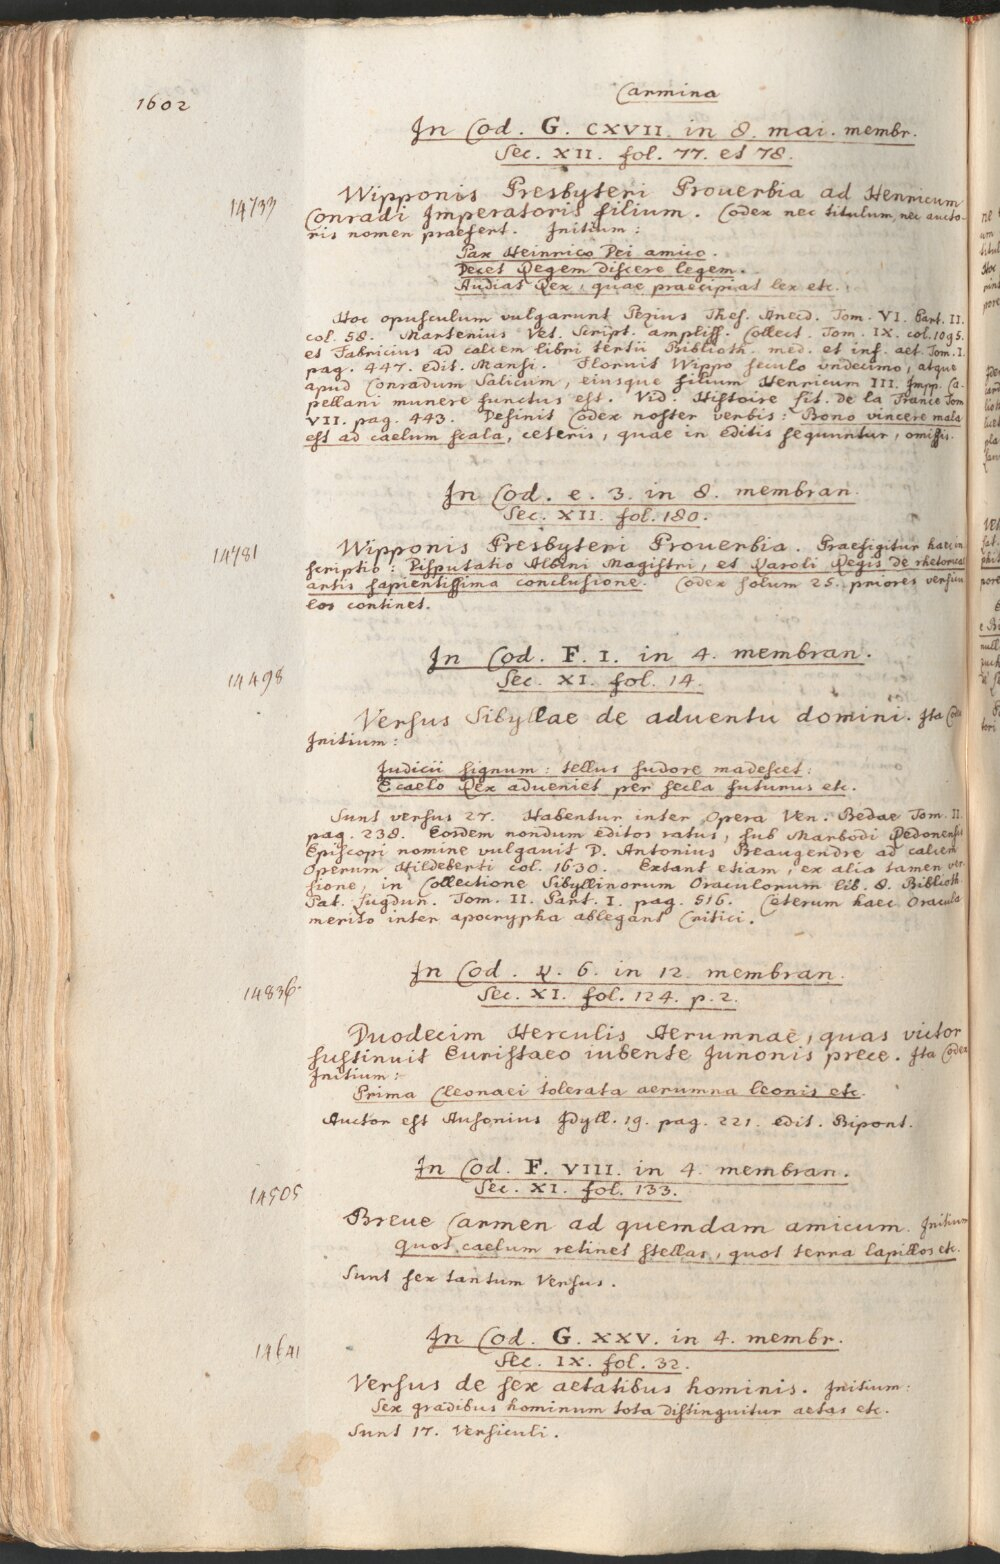 1602
Carmina
In Cod. G. CXVII. in 8. mai. membr.
Sec. XII. fol. 77. et 78.
14733
Wipponis Presbyteri Prouerbia ad Henricum
Conradi Imperatoris filium. Codex nec titulum, nec aucto-
ris nomen praefert. Initium:
Pax Heinrico Dei amico.
Decet Regem discere legem.
Audiat Rex, quae praecipiat lex etc.
Hoc opusculum vulgarunt Pezius Thes. Anecd. Tom. VI. Part. II.
col. 58. Martenius Vet. Script. ampliss. Collect. Tom. IX. col. 1095.
et Fabricius ad calcem libri tertii Biblioth. med. et inf. aet. Tom. I.
pag. 447. edit. Mansi. Floruit Wippo seculo vndecimo, atque
apud Conradum Salicum, eiusque filium Henricum III. Impp. Ca-
pellani munere functus est. Vid. Histoire lit. de la France Tom
VII. pag. 443. Desinit Codex noster verbis: Bono vincere mala
est ad caelum scala, ceteris, quae in editis sequuntur, omissis.
In Cod. e. 3. in 8. membran.
Sec. XII. fol. 180.
14781
Wipponis Presbyteri Prouerbia. Praefigitur haec in
scriptio: Disputatio Albini Magistri, et Karoli Regis de rhetorica
artis sapientissima conclusione. Codex solum 25. priores versicu
los continet.
In Cod. F. I. in 4. membran.
Sec. XI. fol. 14.
14498
Versus Sibyllae de aduentu domini. Ita Codex
Initium:
Judicii signum: tellus sudore madescet:
E caelo Rex adueniet per secla futurus etc.
Sunt versus 27. Habentur inter Opera Ven. Bedae Tom. II.
pag. 238. Eosdem nondum editos ratus, sub Marbodi Redonensis
Episcopi nomine vulgauit D. Antonius Beaugendre ad calcem
Operum Hildeberti col. 1630. Extant etiam, ex alia tamen ver
sione, in Collectione Sibyllinorum Oraculorum lib. 8. Biblioth.
Pat. Lugdun. Tom. II. Part. I. pag. 516. Ceterum haec Oracula
merito inter apocrypha ablegant Critici.
In Cod. 6. in 12. membran.
Sec. XI. fol. 124. p. 2.
14836
Duodecim Herculis Aerumnae, quas victor
sustinuit Euristaeo iubente Junonis prece. Ita Codex
Initium:
Prima Cleonaei tolerata aerumna leonis etc.
Auctor est Ausonius Idyll. 19. pag. 221. edit. Bipont.
In Cod. F. VIII. in 4. membran.
Sec. XI. fol. 133.
14505
Breue Carmen ad quemdam amicum. Initium
quot caelum retinet stellas, quot terra lapillos etc.
Sunt sex tantum Versus.
In Cod. G. XXV. in 4. membr.
Sec. IX. fol. 32.
14641
Versus de sex aetatibus hominis. Initium:
Sex gradibus hominum tota distinguitur aetas etc.
Sunt 17. Versiculi.